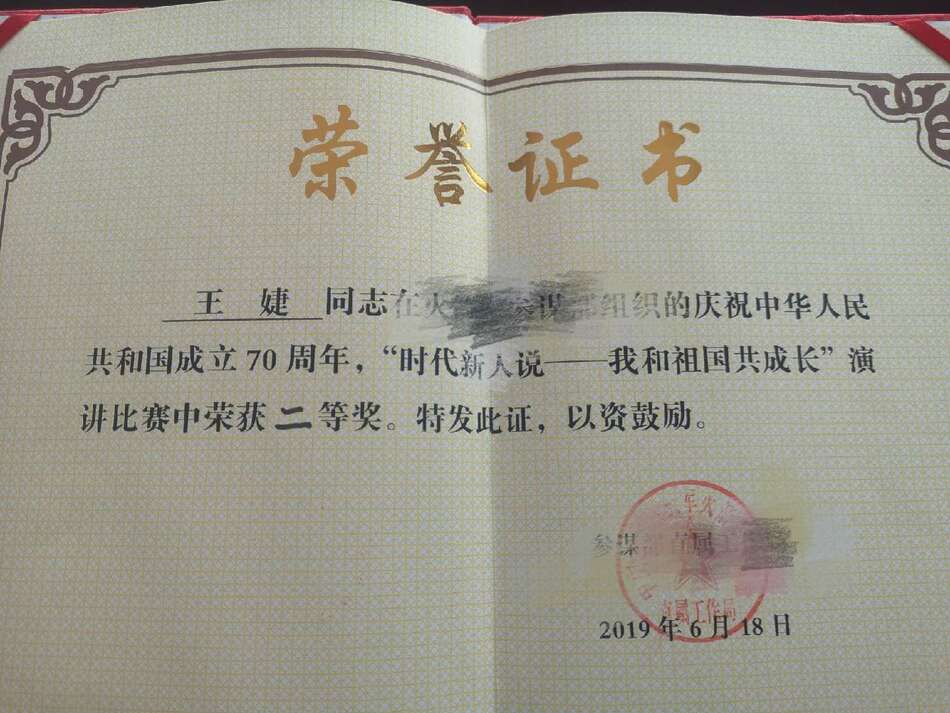 荣誉证书
王婕 同志在火 参谋部组织的庆祝中华人民
共和国成立70周年，“时代新人说——我和祖国共成长”演
讲比赛中荣获二等奖。特发此证，以资鼓励。
参谋部直属工
直属工作局
2019年6月18日